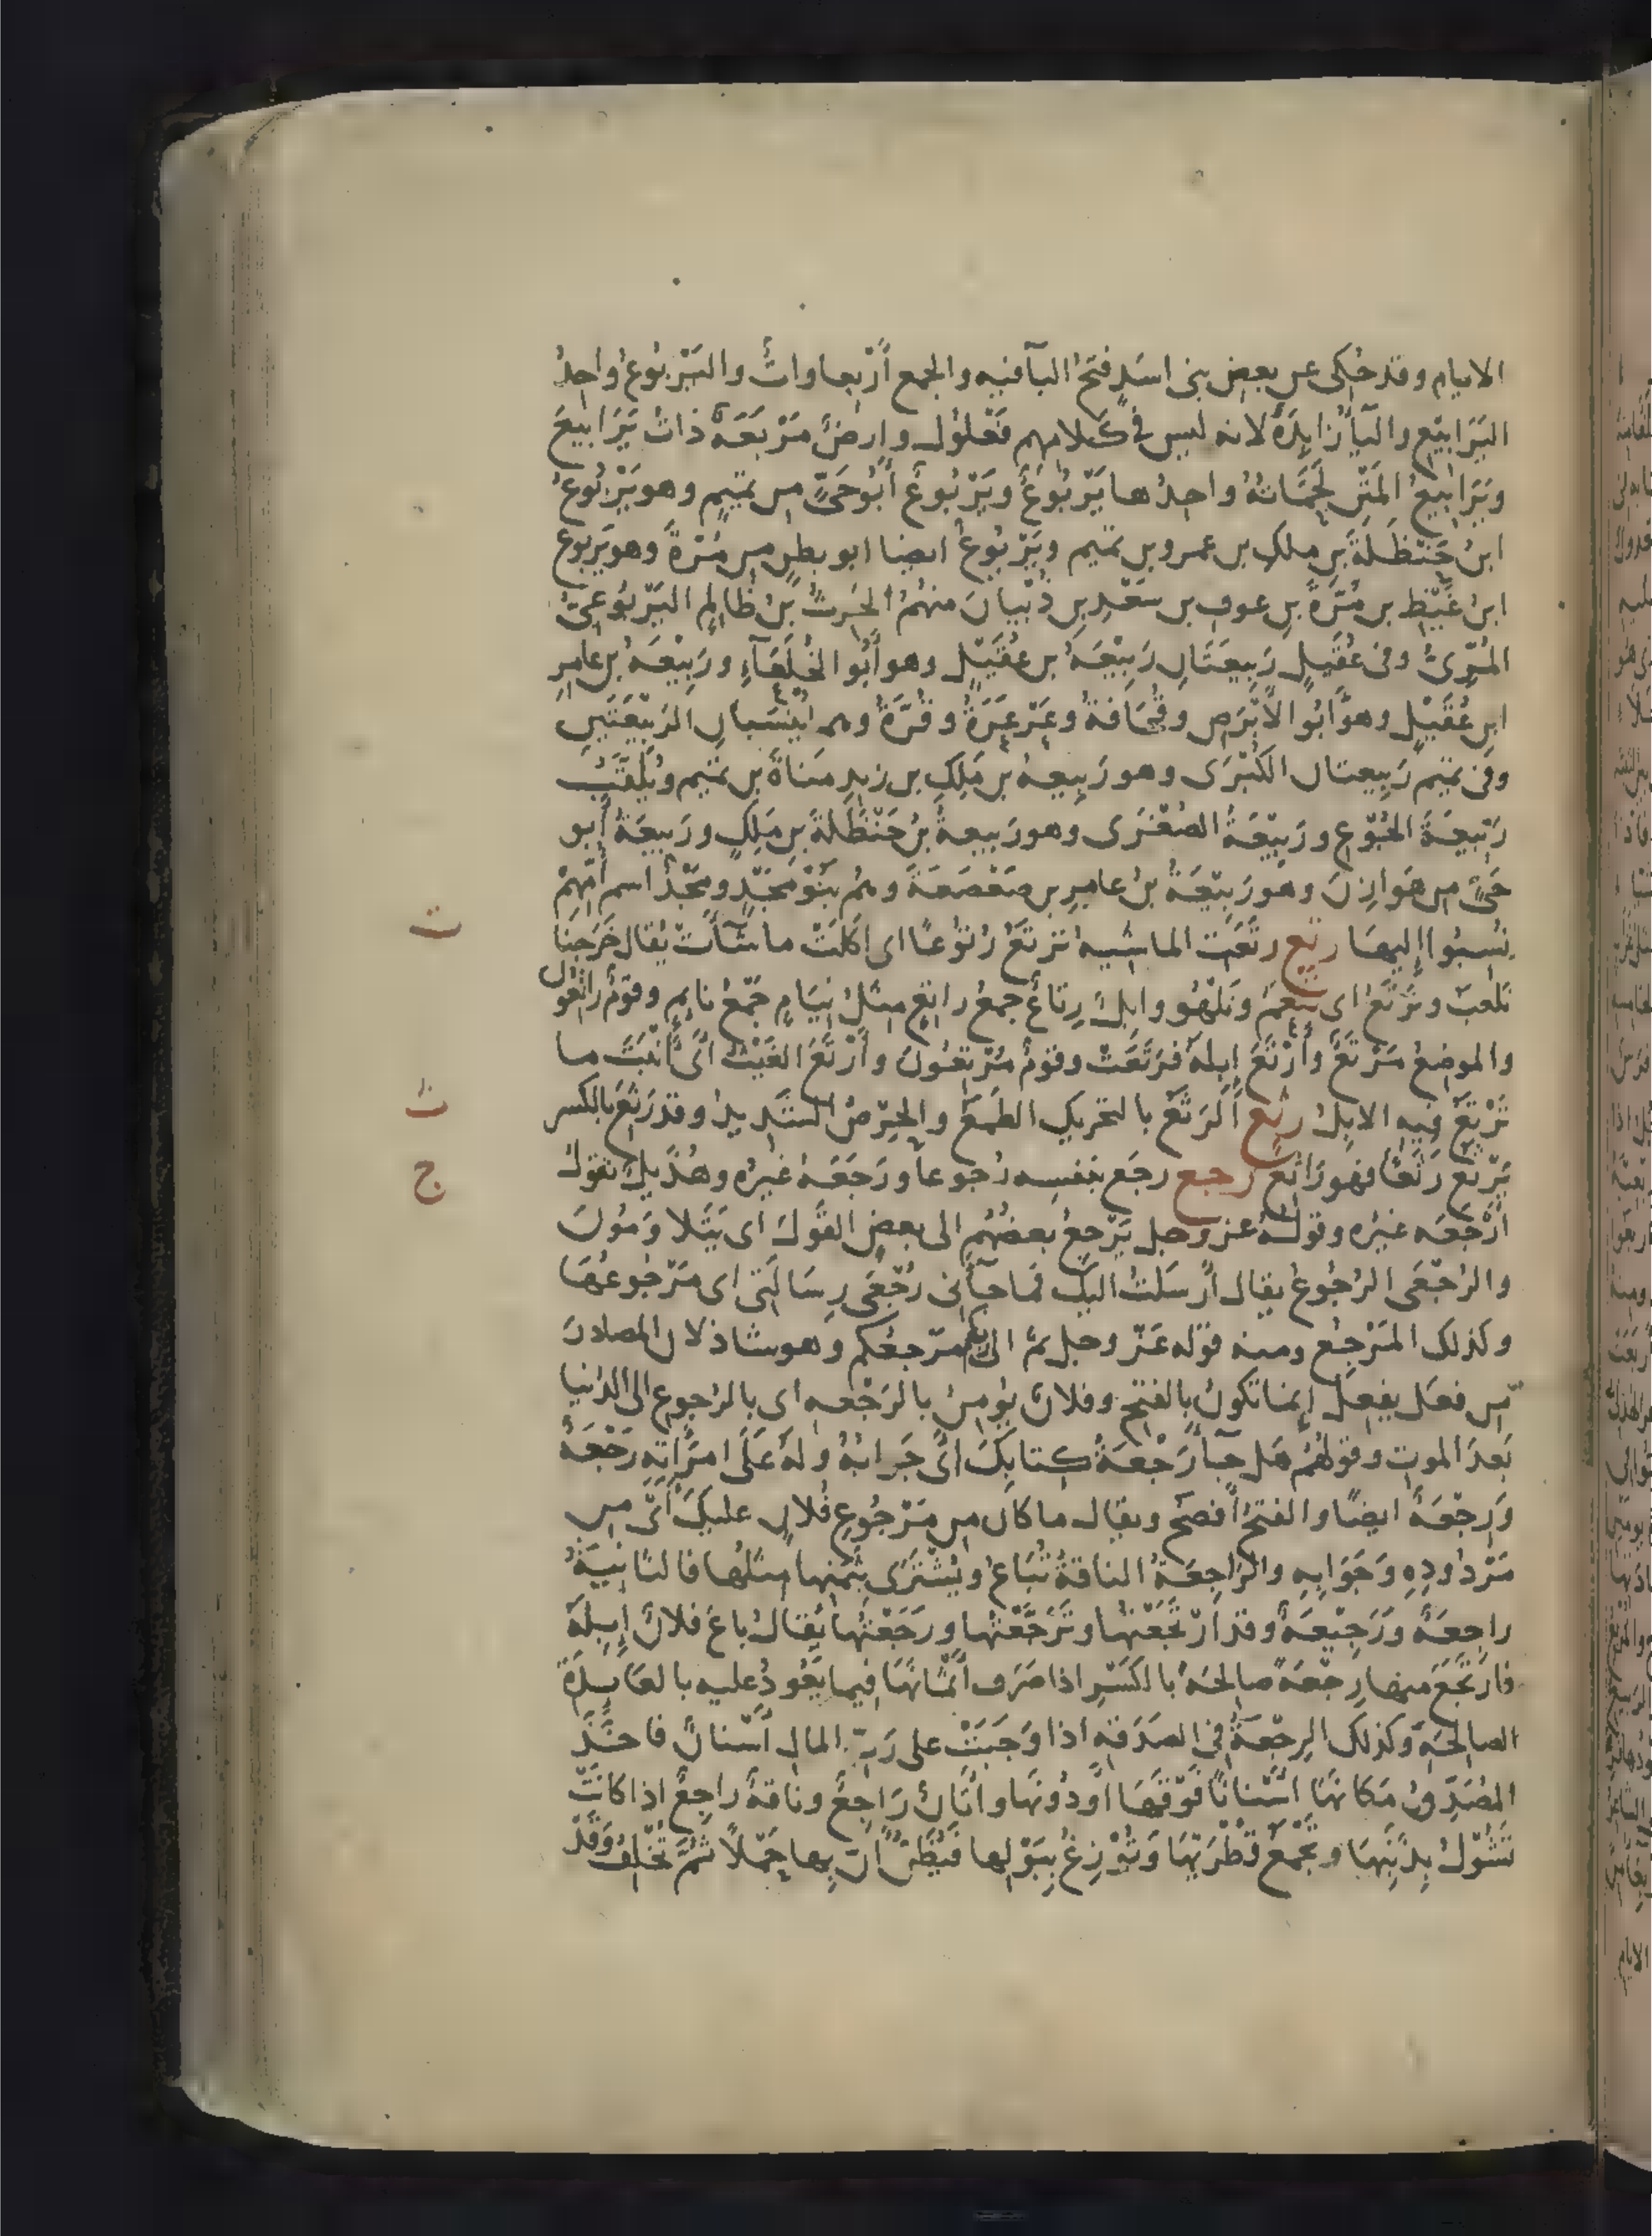 الايام وقد حُكى عن بعض بنى اسَدٍ فتحُ البآ فيه والجمع أرْبعاواتٌ واليَرْبُوعُ واحِدُ
اليَرَابيْع واليآ زايدَةٌ لانه ليس فى كلامهم فَعْلوُل وارضٌ مَرْبَعَةٌ ذاتُ يَرَابيعَ
ويَرَابيعُ المَتْنِ لَحَمَاتُهُ واحِدُها يَرْبُوعٌ ويَرْبُوعٌ أَبُو حَىٍّ من تميمٍ وهو يَرْبُوعُ
ابنُ حَنْظَلَةَ بنِ ملكِ بن عمرو بن تميم ويَرْبُوعٌ ايضا ابو بطنٍ من مُرّةَ وهو يَربوع
ابنُ غَيْظِ بن مُرَّةَ بنِ عوف بن سَعْدِ بنِ ذُبْيانَ منهُمُ الحٰرِثُ بْنُ ظَالِمٍ اليَرْبُوعىُّ
المُرِّىُّ وفى عُقَيلٍ رَبيعَتَانِ رَبِيْعَةُ بن عُقَيْلٍ وهو أَبُو الخُلَعَآءِ ورَبِيْعَةُ بن عامِرِ
ابنِ عُقَيْلٍ وهو أَبُو الأَبْرَصِ وقُحَافَةَ وعَرْعَرَةَ وقُرَّةَ وهما يُنْسَبانِ الرَبِيْعَتَيْنِ
وفى تميم رَبِيعتان الكُبْرَى وهو رَبِيعةُ بْنُ مَلِكِ بن زيدِ مَناةَ بن تميم ويُلَقَّبُ
رَبِيعَةَ الجُوْعِ ورَبِيْعَةُ الصُغْرَى وهو رَبيعةُ بنُ حَنْظَلَةَ بنِ مَلِكٍ ورَبيعَةُ أبو
حَىٍّ من هَوازِنَ وهو رَبِيْعَةُ بنُ عامِرِ بن صَعْصَعَةَ وهُم بَنُو مَجْدٍ ومَجْدُ اسم أُمِّهِمْ
نُسِبُوا إليها رتع رتَعَت الماشيه تَرتَعُ رُتوْعًا اى اكَلَتْ ما شَآأَتْ يُقال خَرَجنَا
نلعبُ ونَرْتَعُ اى نَنْعَمُ ونَلْهُو وابِلٌ رِتاعٌ جمعُ راتِعٍ مثلُ نِيَامٍ جَمْعُ نايِمٍ وقومٌ راتعُون
والموضعُ مَرْتَعٌ وأرْتَعَ ابِلَهُ فرَتَعَتْ وقومٌ مُرْتِعُونَ وأَرْتَعَ الغَيْثُ اى أَنْبَتَ ما
تَرْتَعُ فيه الابِلُ رثع ألرَثَعُ بالتحريك الطَمَعُ والحِرْصُ الشَديدُ وقد رَثِعَ بالكسر
يَرْثَعُ رَثَعًا فهو رَاثِعٌ رجع رجَع بنفسِه رُجوعا ورَجَعَهُ غيْرُه وهُذَيلٌ تقولُ
أَرْجَعَه غيْرُه وقولُهُ عز وجل يَرْجِعُ بعضُهُم الى بعضٍ القَولَ اى يَتَلاوَمُونَ
والرُجْعَى الرُجُوعُ يقال أَرسَلتُ اليكَ فما جآأنى رُجْعَى رِسَالَتِى اى مَرْجُوعُهَا
وكذلك المَرْجِعُ ومنه قوْله عَزّ وجل ثم الى ربكم مَرْجِعُكم وهو شاذ لان المصادرَ
من فعَل يفعِل إنما تكونُ بالفتح وفلانٌ يؤمنُ بالرَجْعه اى بالرُجوعِ الى الدُنيا
بَعدَ الموت وقولهُمُ هَل جآأَ رَجْعَةُ كتابِكَ اىْ جَوابُهُ ولهُ عَلَى امرَأتِهِ رَجْعَةٌ
ورِجْعَةٌ ايضًا والفتحُ أفصَحُ ويقال ما كان من مَرْجُوعِ فُلانٍ عليكَ أى من
مَرْدُودِهِ وَجَوَابِهِ والرَاجِعَةُ الناقةُ تُبَاعُ ويُشْتَرَى بثَمنِها مثلُها فالثانِيَةُ
راجِعَةٌ ورَجِيْعَةٌ وقد ارْتَجَعْتُها وتَرَجَّعْتُها ورَجَعْتُها يُقالُ باعَ فلانٌ إبِلَهُ
فارْتَجَعَ منها رِجْعَةً صالحَةً بالكَسْرِ اذا صَرَفَ أَثْمانَهَا فيما يَعُودُ عليه بالعَايِدَةِ
الصالحةِ وكذلك الرِجْعَةُ فى الصَدَقَةِ اذا وَجَبَتْ على رَبِّ المالِ أَسْنانٌ فاخَذَ
المُصَدِّقُ مَكانَهَا أسْنانًا فَوْقَهَا أودُونَها وأتَانٌ رَاجِعٌ وناقةٌ رَاجِعٌ اذا كانَتْ
تَشُوْلُ بِذَنَبِهَا وتَجْمَعُ قُطْرَيْهَا وتُوْزِغُ بِبَوْلِها فيُظَنُّ أنّ بِها حَمْلاً ثُمَّ تُخْلِفُ وقَدْ
ت
ث
ج